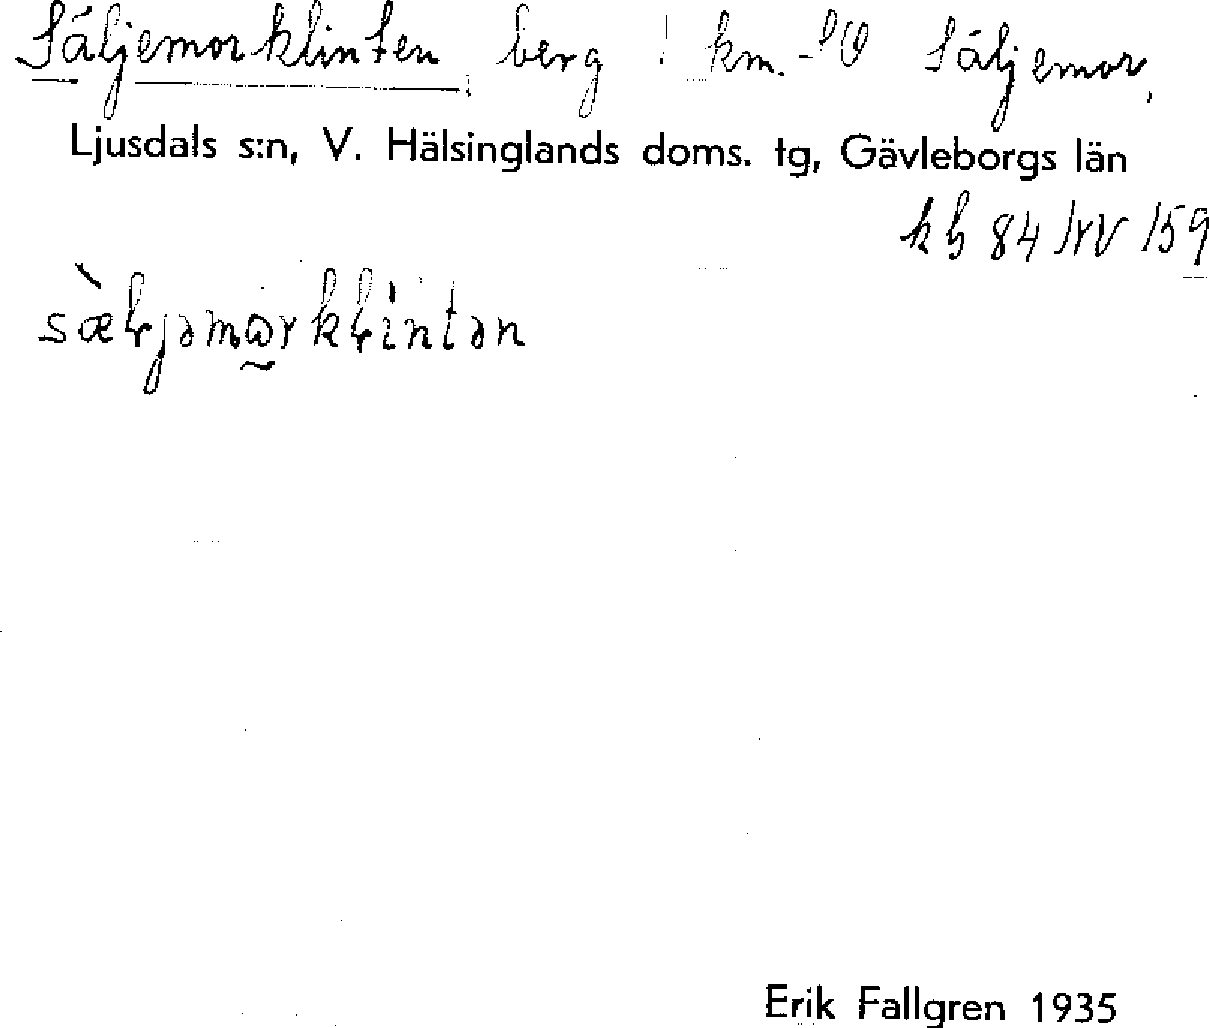 Säljemorklinten, berg 1 km. SV Säljemor,
Ljusdals s:n, V. Hälsinglands doms. tg, Gävleborgs län
kb 84 NV 159
Erik Fallgren 1935